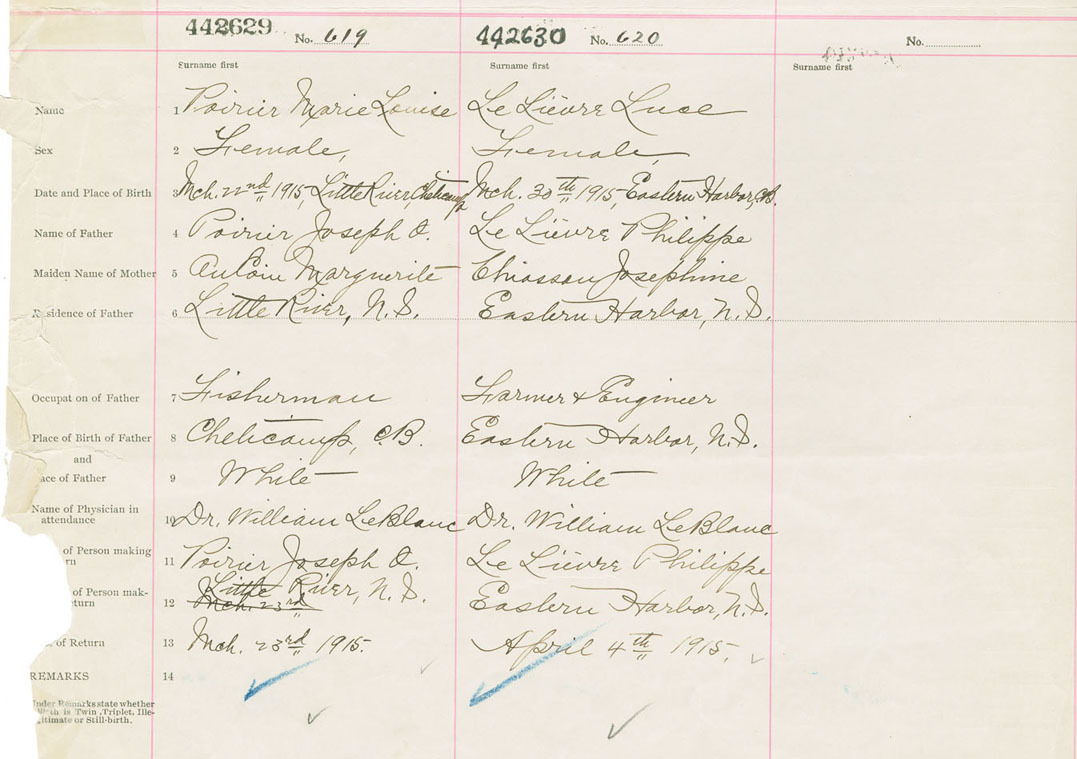 442629 No. 619 442630 No. 620 No.
Surname first Surname first Surname first
Name 1 Poirier Marie Louise Le Lièvre Luce
Sex 2 Female, Female,
Date and Place of Birth 3 Mch. 22nd 1915, Little River, Cheticamp Mch. 30th 1915, Eastern Harbor, C.B.
Name of Father 4 Poirier Joseph Le Lièvre Philippe
Maiden Name of Mother 5 AuCoin Marguerite Chiasson Josephine
Residence of Father 6 Little River, N.S. Eastern Harbor, N.S.
Occupat on of Father 7 Fisherman Farmer & Engineer
Place of Birth of Father 8 Cheticamp, C.B. Eastern Harbor, N.S.
and
ace of Father 9 White White
Name of Physician in
attendance 10 Dr. William LeBlanc Dr. William LeBlanc
of Person making
rn 11 Poirier Joseph Le Lièvre Philippe
of Person mak-
eturn 12 Little River, N.S. Mch. 23rd Eastern Harbor, N.S.
of Return 13 Mch. 23rd 1915. April 4th 1915.
REMARKS 14
Under Remarks state whether
Birth is Twin, Triplet, Ille-
gitimate or Still-birth.